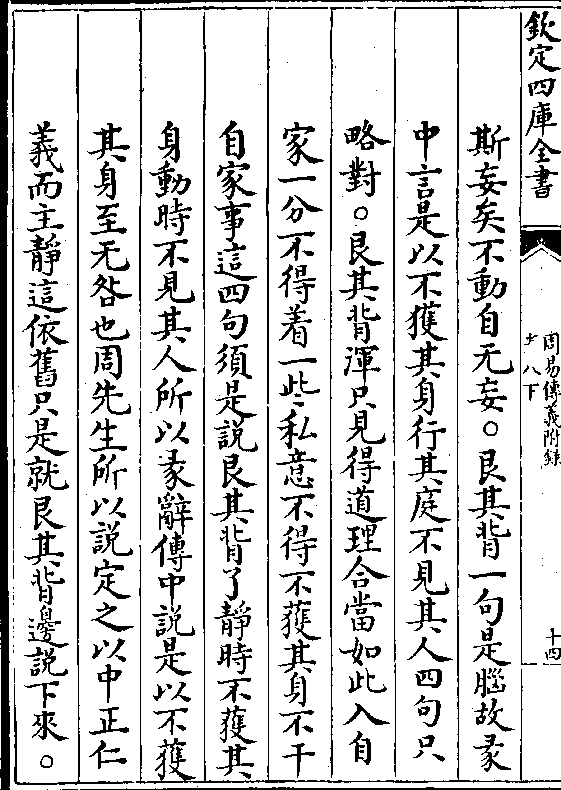 欽定四庫全書
周易傳義附錄
十八下
十四
斯妄矣不動自无妄。艮其背一句是腦故彖
中言是以不獲其身行其庭不見其人四句只
略對。艮其背渾只見得道理合當如此入自
家一分不得着一些私意不得不獲其身不干
自家事這四句須是説艮其背了靜時不獲其
身動時不見其人所以彖辭傳中説是以不獲
其身至无咎也周先生所以説定之以中正仁
義而主靜這依舊只是就艮其背邊説下來。